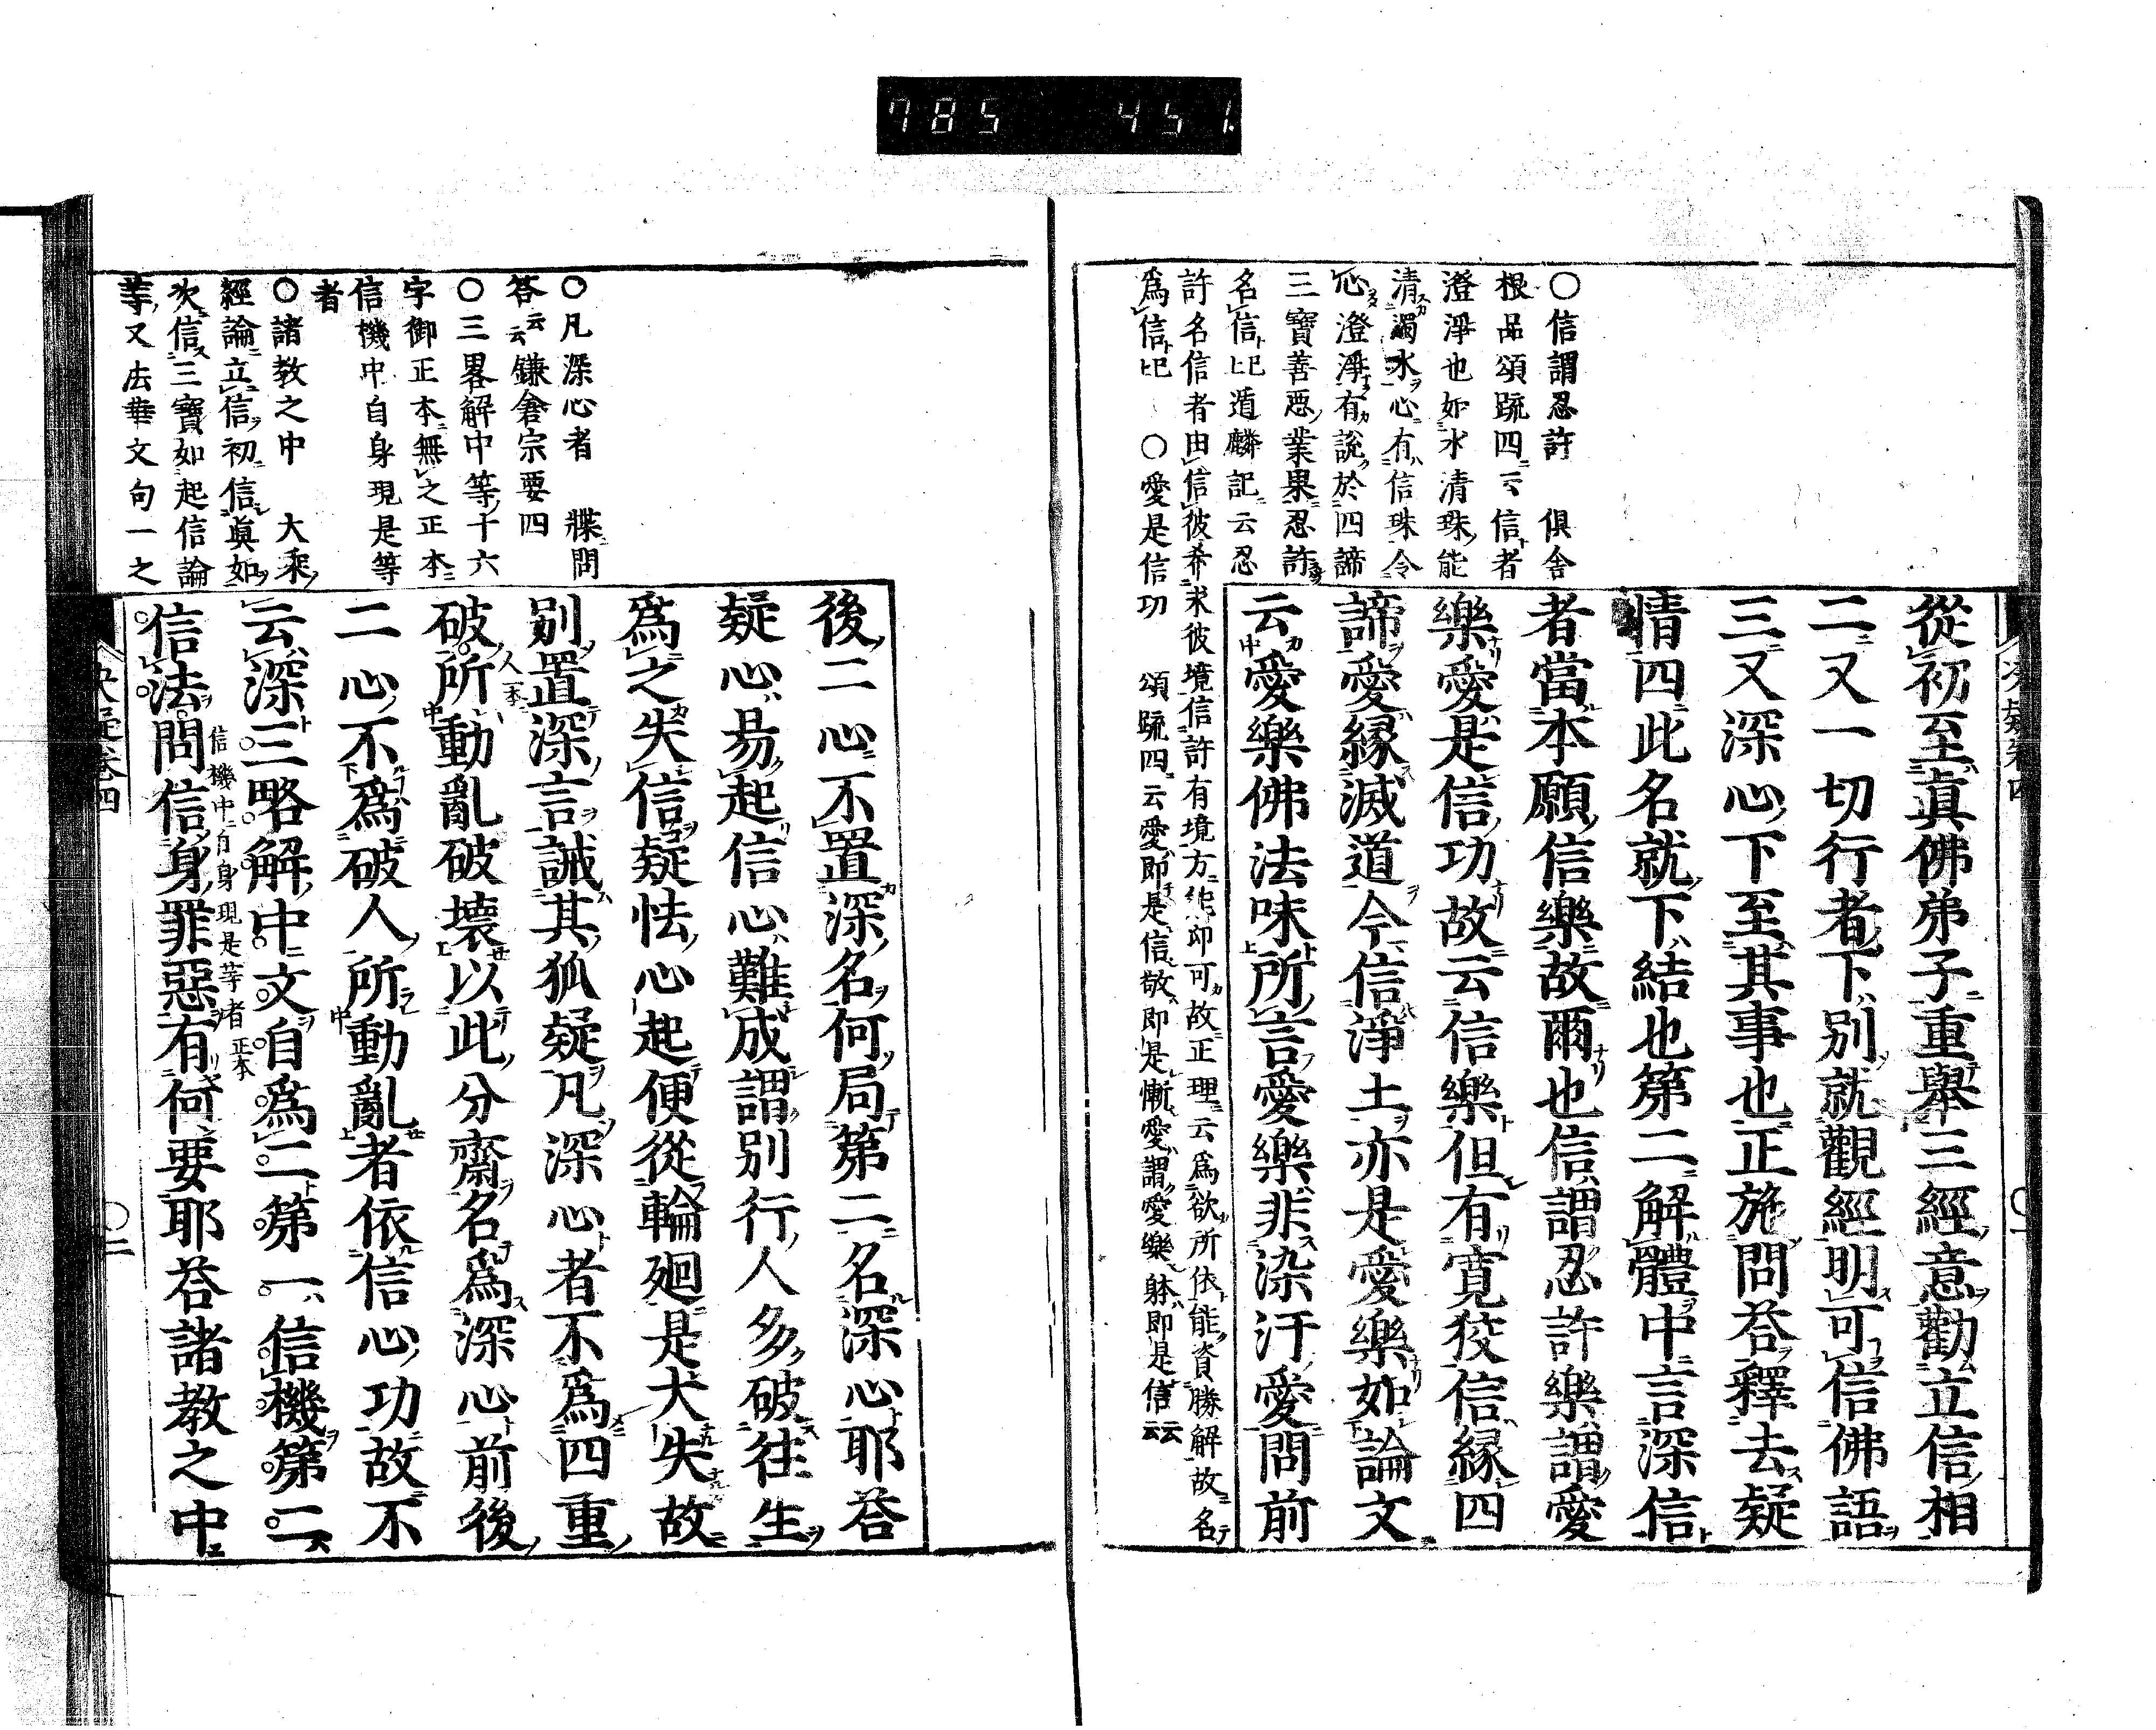 785 451.
○信謂忍許 倶舍
根品頌䟽四云信者
澄淨也如水清珠能
清濁水心有信珠令
心澄淨有說於四諦
三寶善惡業果忍許
名信㠯遁麟記云忍
許名信者由信彼希求彼境信許有境方能印可故正理云爲欲所依能資勝解故名
爲信㠯 ○愛是信功 頌䟽四云愛即是信敬即是慚愛謂愛樂躰即是信云云
從初至眞佛弟子重擧三經意勸立信相
二又一切行者下別就觀經明可信佛語
三又深心下至其事也正施問荅釋去疑
情四此名就下結也第二解體中言深信
者當本願信樂故爾也信謂忍許樂謂愛
樂愛是信功故云信樂但有寬狡信縁四
諦愛縁滅道今信淨土亦是愛樂如論文
云愛樂佛法味所言愛樂非染汙愛問前
○凡深心者 牒問
答云云鎌倉宗要四
○三畧解中等十六
字御正本無之正本
信機中自身現是等
者
○諸教之中 大乘
經論立信初信眞如
次信三寶如起信論
等又法華文句一之
後二心不置深名何局第二名深心耶荅
疑心易起信心難成謂別行人多破往生
爲之失信疑怯心起便從輪廻是大失故
別置深言誡其狐疑凡深心者不爲四重
破人一本所動亂破壞以此分齋名爲深心前後
二心不爲破人所動亂者依信心功故不
云深三略解中文自爲二第一信機第二
信機中自身現是等者正本
信法問信身罪惡有何要耶荅諸教之中
決疑卷四
○二